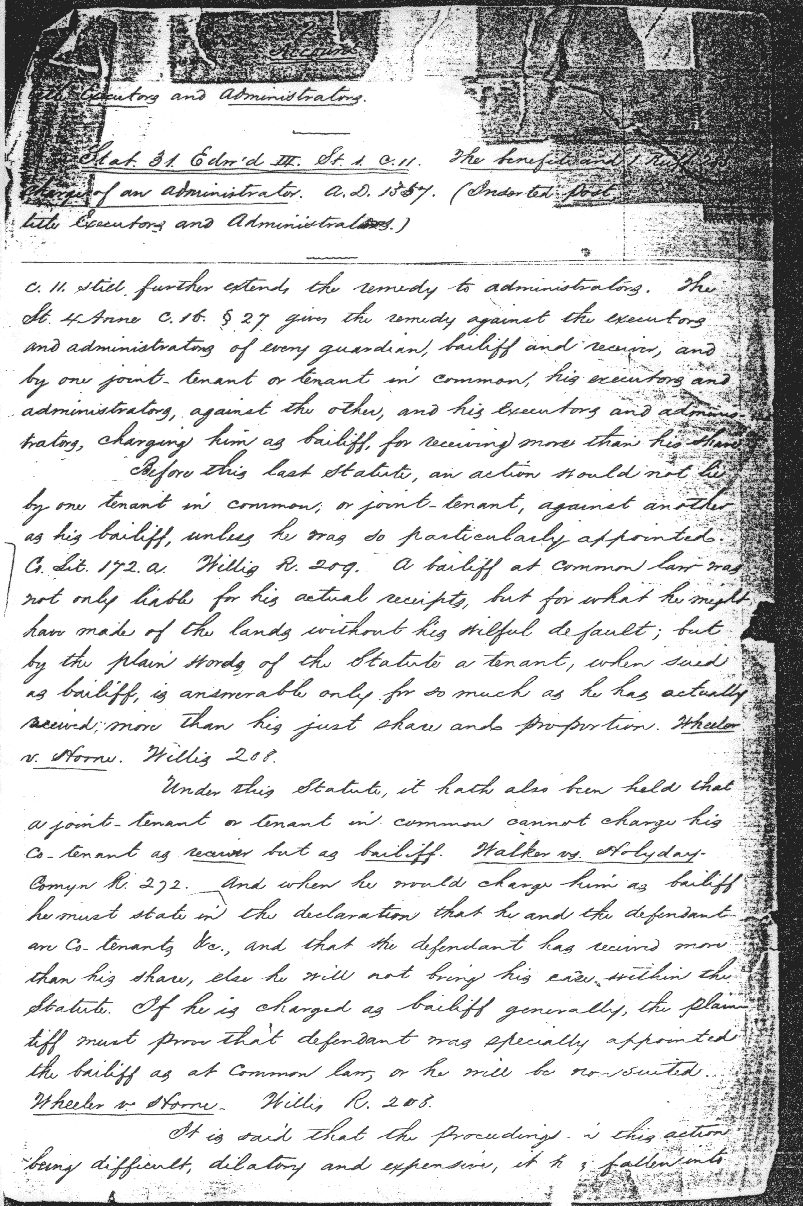 2
Account
title Executors and Administrators.
Stat. 31 Edw'd III. St. 1. C. 11. The benefit and 1 Ruff 288
charge of an administrator. A.D. 1357. (Inserted post
title Executors and Administrators.)
c. 11. still further extends the remedy to administrators. The
St. 4 Anne c. 16. § 27 gives the remedy against the executors
and administrators of every guardian, bailiff and receiver, and
by one joint-tenant or tenant in common, his executors and
administrators, against the other, and his Executors and adminis-
trators, charging him as bailiff, for receiving more than his share
Before this last Statute, an action would not lie
by one tenant in common, or joint-tenant, against another
as his bailiff, unless he was so particularly appointed.
Co. Lit. 172. a. Willis R. 209. A bailiff at common law was
not only liable for his actual receipts, but for what he might
have made of the lands without his wilful default; but
by the plain words of the Statute a tenant, when sued
as bailiff, is answerable only for so much as he has actually
received, more than his just share and proportion. Wheeler
v. Horne. Willis 208.
Under this Statute, it hath also been held that
a joint-tenant or tenant in common cannot charge his
Co-tenant as receiver but as bailiff. Walker vs. Holyday-
Comyn R. 272. And when he would charge him as bailiff
he must state in the declaration that he and the defendant
are Co-tenants &c., and that the defendant has received more
than his share, else he will not bring his case within the
Statute. If he is charged as bailiff generally, the plain-
tiff must prove that defendant was specially appointed
the bailiff as at Common law, or he will be non-suited.
Wheeler v Horne. Willis R. 208.
It is said that the proceedings in this action
being difficult, dilatory and expensive, it h s fallen into